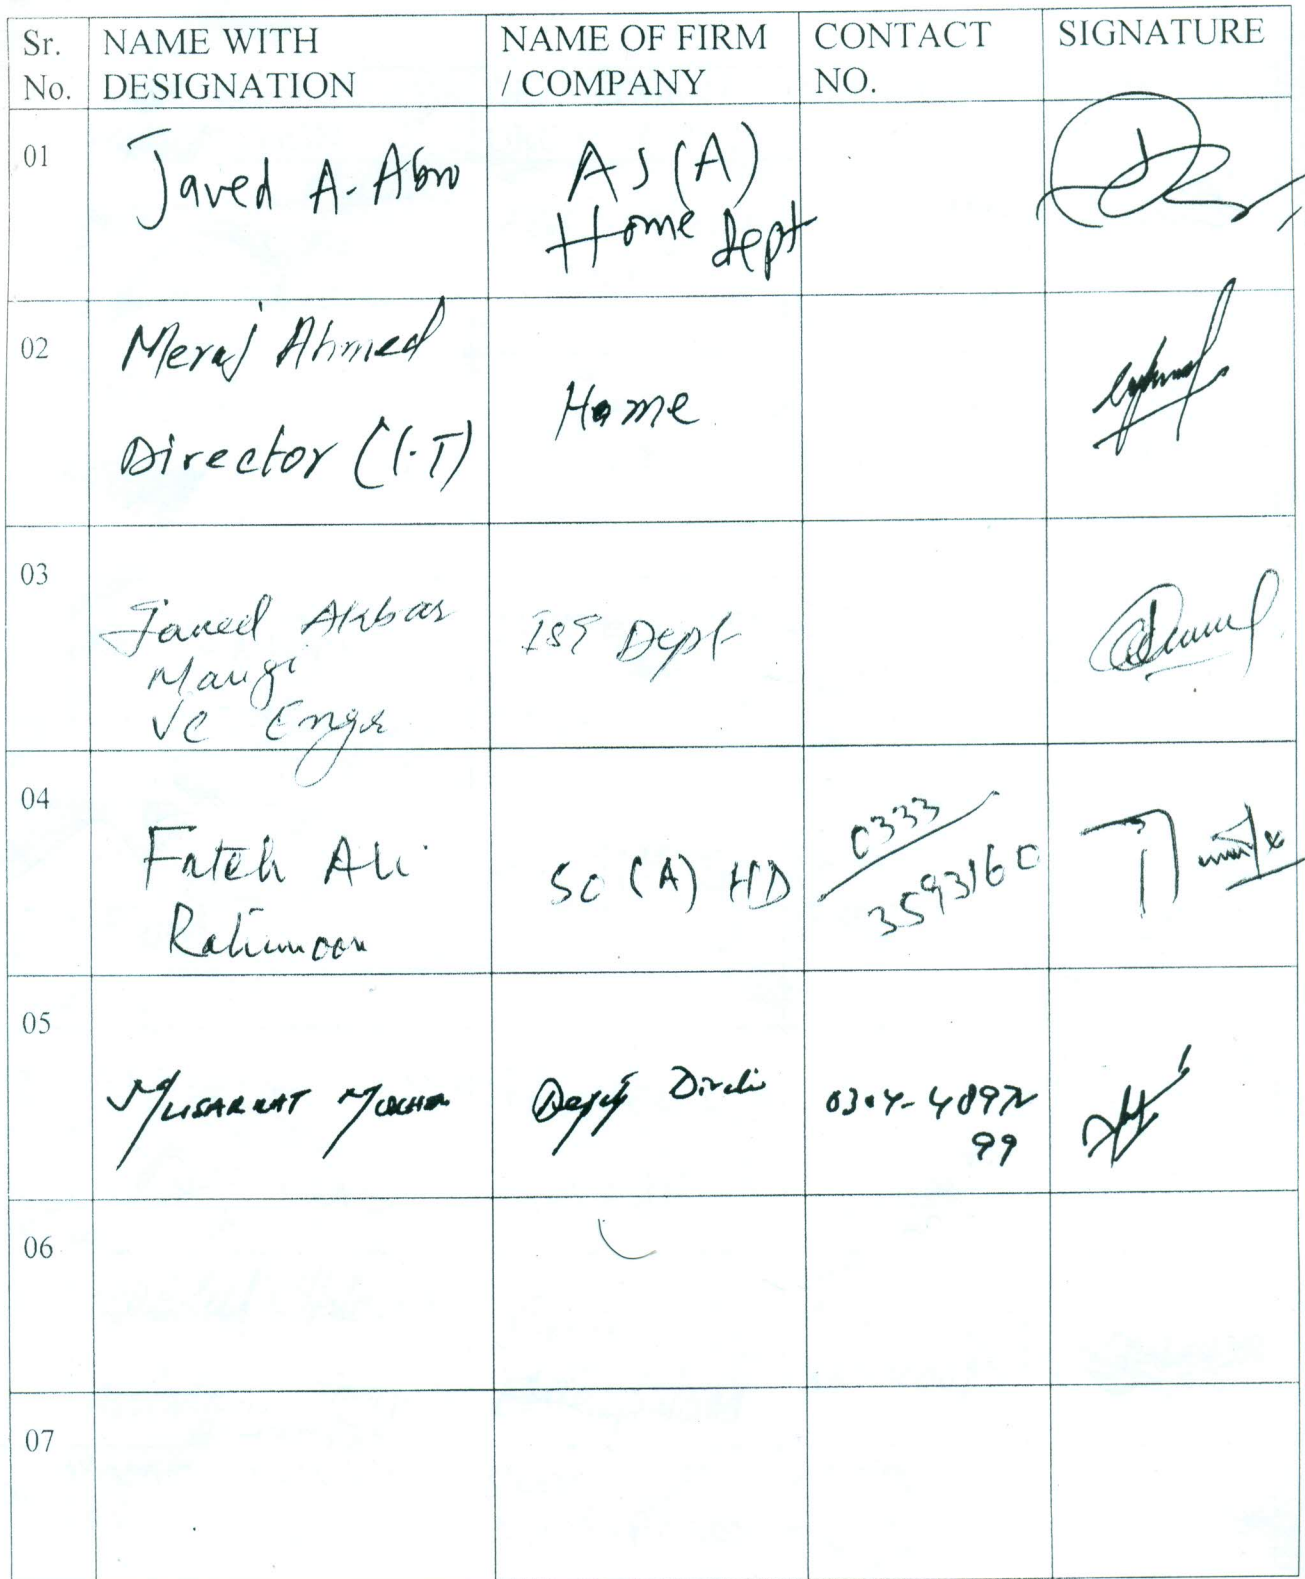 Sr. No.
NAME WITH DESIGNATION
NAME OF FIRM / COMPANY
CONTACT NO.
SIGNATURE
01
Javed A. Abro
AS (A)
Home Dept
02
Meraj Ahmed
Director (I.T)
Home
03
Javed Akbar
Mangi
VC Engr
Dept
04
Fateh Ali
Rahimoon
SO (A) HD
0333
3593160
05
Musarrat
Deputy
06
07